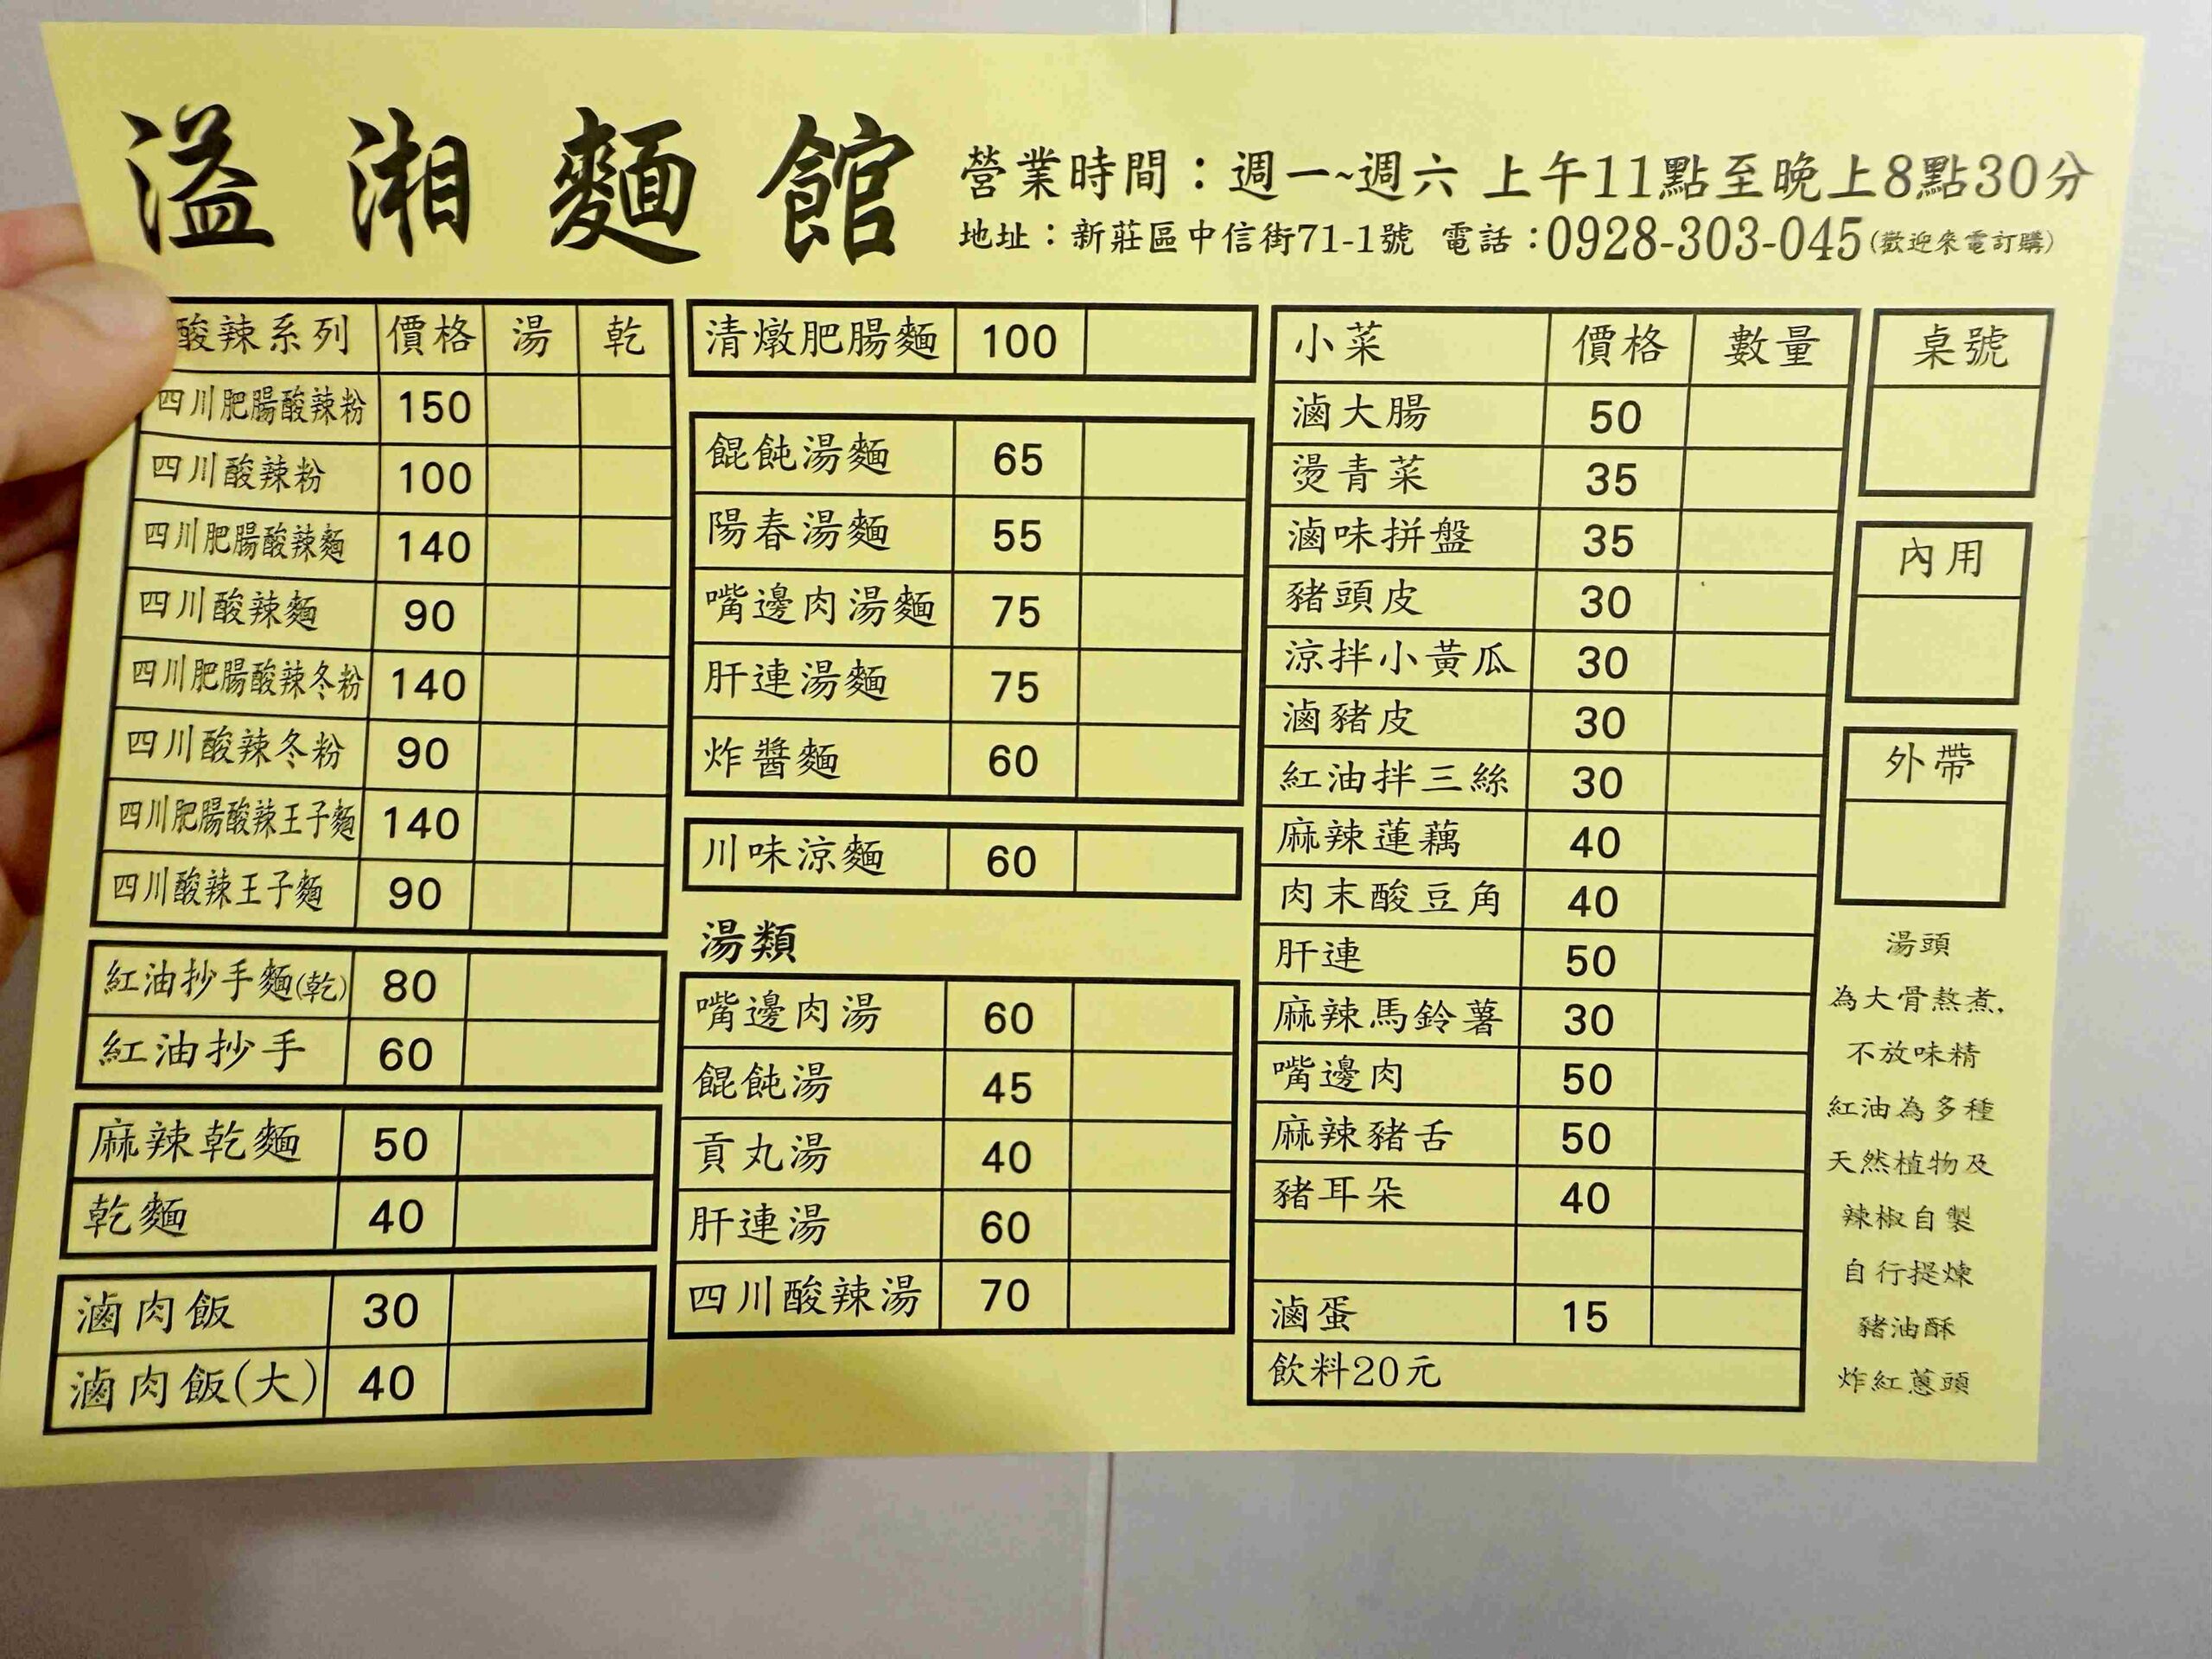 溢湘麵館
營業時間：週一~週六 上午11點至晚上8點30分
地址：新莊區中信街71-1號 電話：0928-303-045(歡迎來電訂購)
酸辣系列 價格 湯 乾
四川肥腸酸辣粉 150
四川酸辣粉 100
四川肥腸酸辣麵 140
四川酸辣麵 90
四川肥腸酸辣冬粉 140
四川酸辣冬粉 90
四川肥腸酸辣王子麵 140
四川酸辣王子麵 90
紅油抄手麵(乾) 80
紅油抄手 60
麻辣乾麵 50
乾麵 40
滷肉飯 30
滷肉飯(大) 40
清燉肥腸麵 100
餛飩湯麵 65
陽春湯麵 55
嘴邊肉湯麵 75
肝連湯麵 75
炸醬麵 60
川味涼麵 60
湯類
嘴邊肉湯 60
餛飩湯 45
貢丸湯 40
肝連湯 60
四川酸辣湯 70
小菜 價格 數量
滷大腸 50
燙青菜 35
滷味拼盤 35
豬頭皮 30
涼拌小黃瓜 30
滷豬皮 30
紅油拌三絲 30
麻辣蓮藕 40
肉末酸豆角 40
肝連 50
麻辣馬鈴薯 30
嘴邊肉 50
麻辣豬舌 50
豬耳朵 40
滷蛋 15
飲料20元
桌號
內用
外帶
湯頭
為大骨熬煮,
不放味精
紅油為多種
天然植物及
辣椒自製
自行提煉
豬油酥
炸紅蔥頭